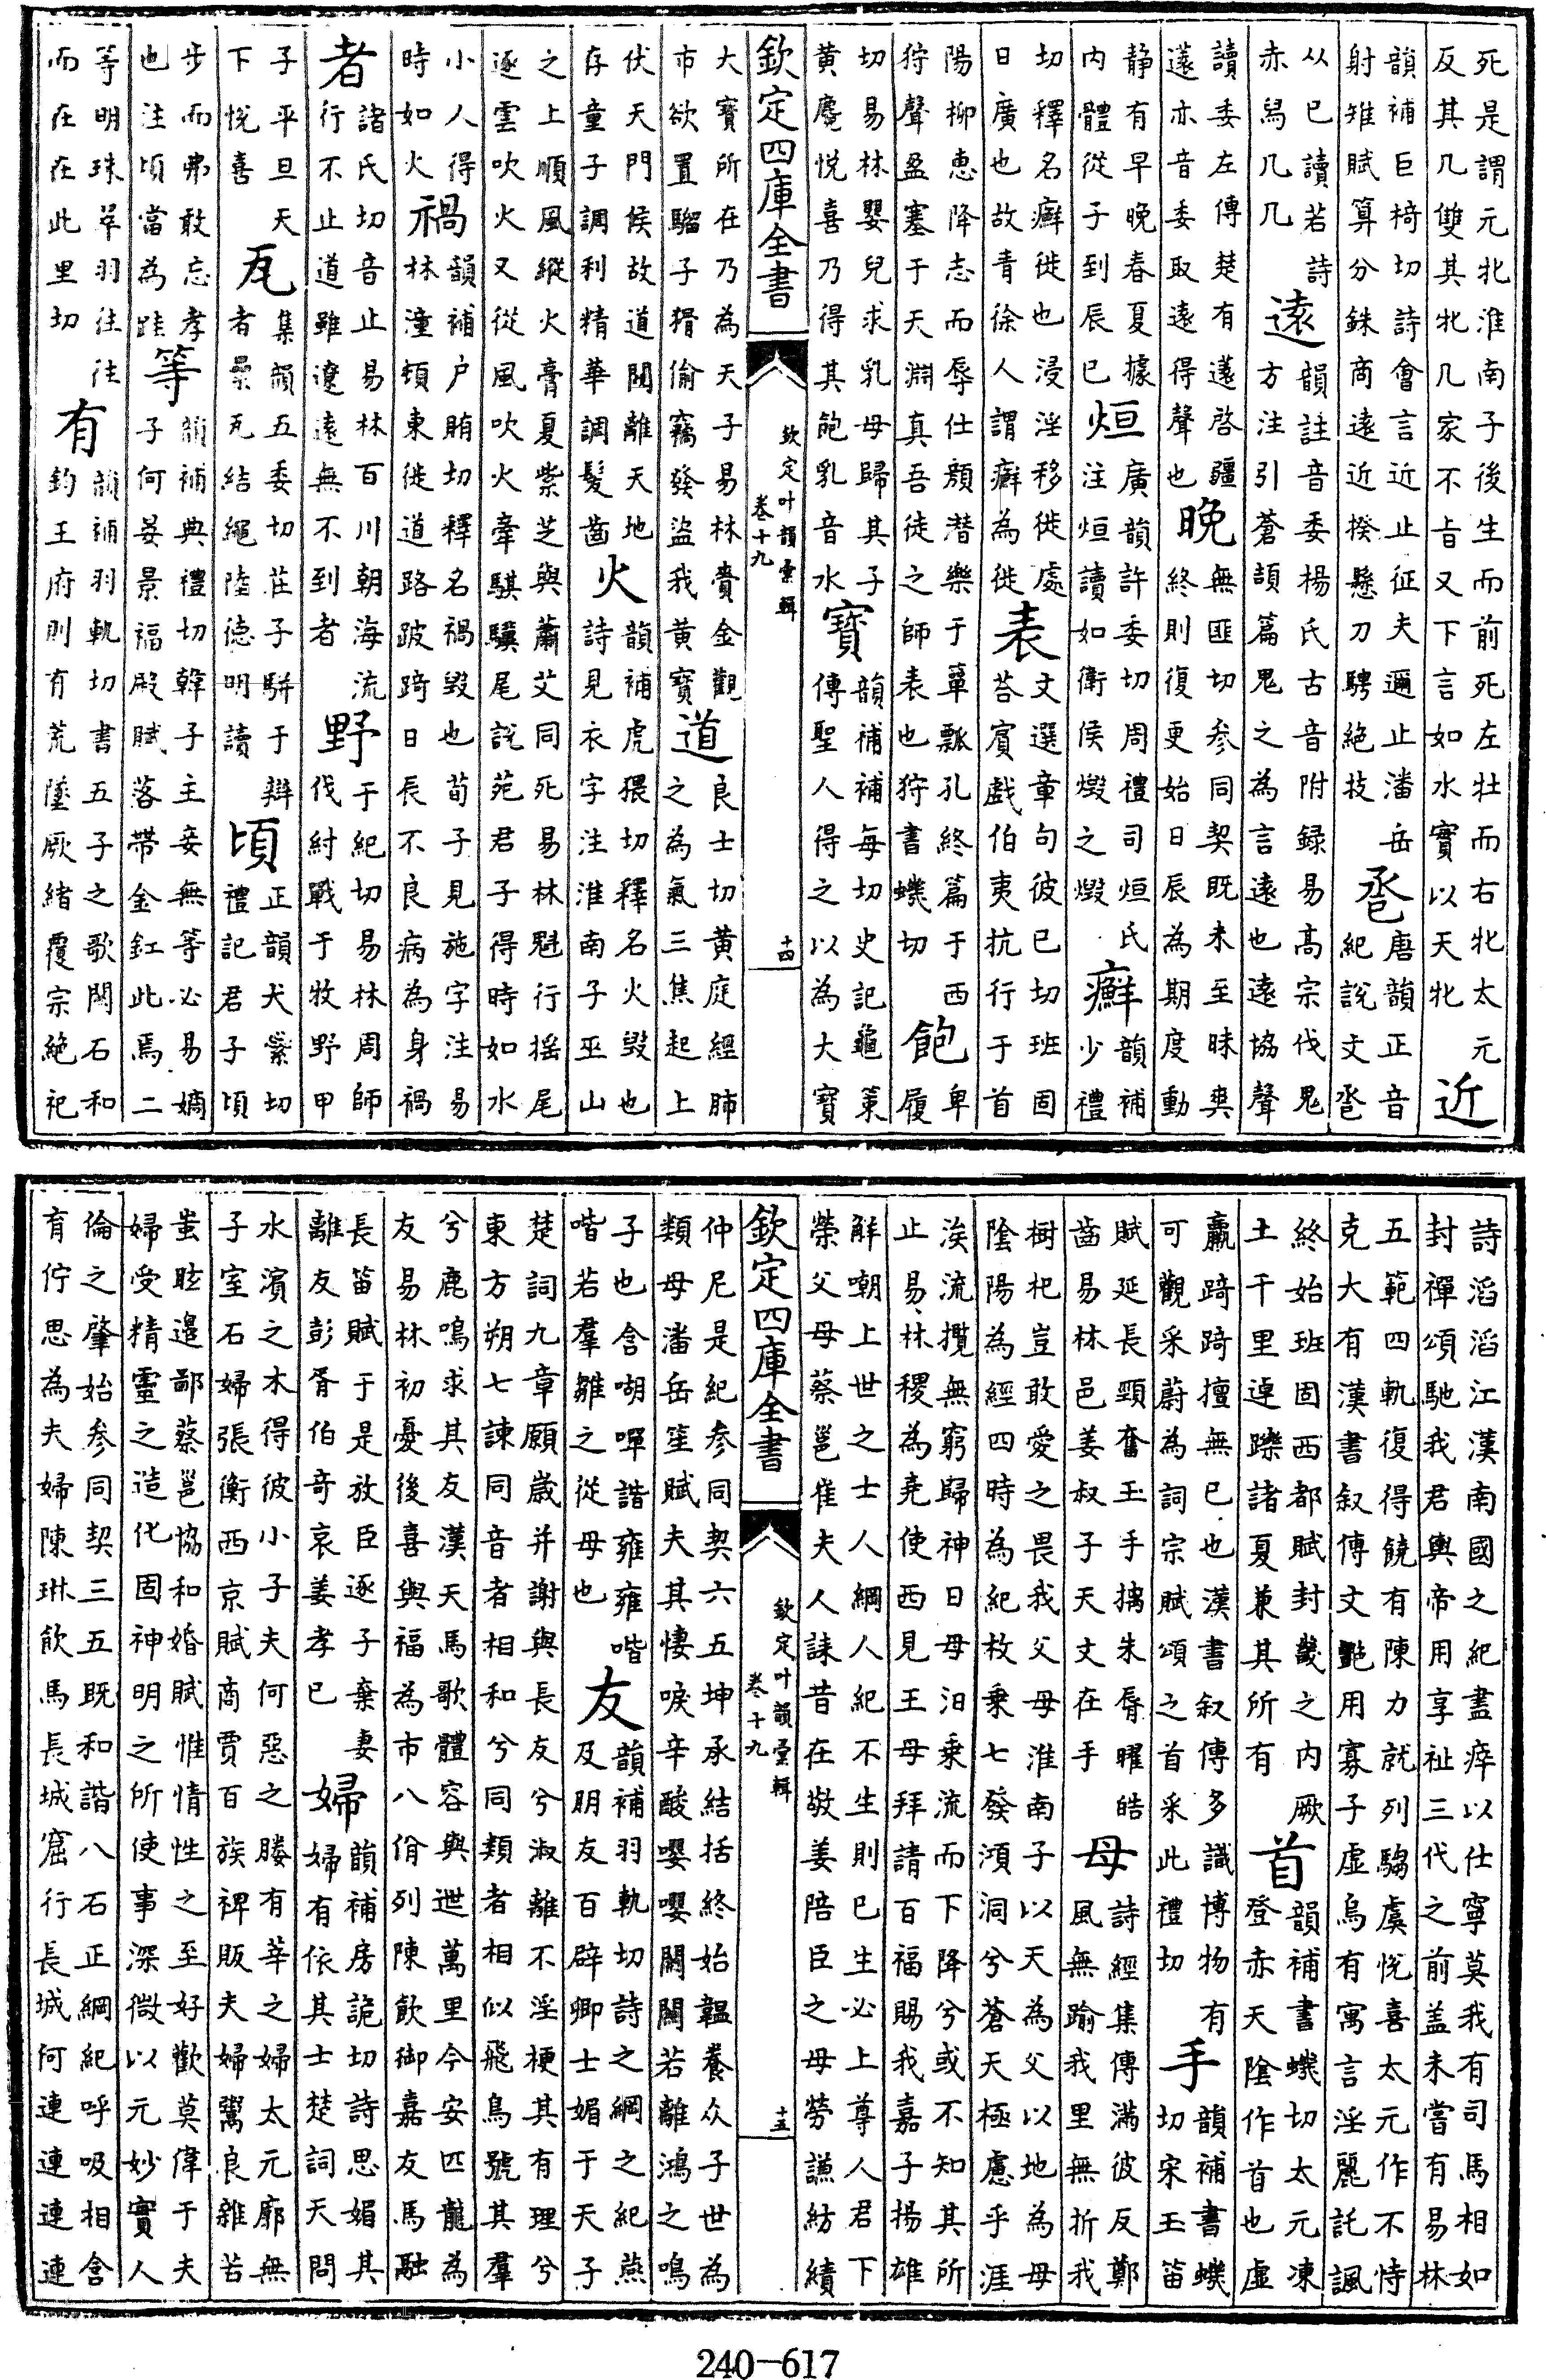 死是謂元北淮南子後生而前死左牡而右牝太元
反其几雙其牝几家不旨又下言如水實以天牝
近
韻補巨椅切詩會言近止征夫邇止潘岳
射雉賦算分銖商遠近揆懸刀騁絶技
卺
唐韻正音
紀說文卺
从巳讀若詩
赤舄几几
遠
韻註音委楊氏古音附録易高宗伐鬼
方注引蒼頡篇鬼之為言遠也遠協聲
讀委左傳楚有薳啓疆
薳亦音委取遠得聲也
晚
無匪切参同契既未至昧爽
終則復更始日辰為期度動
静有早晚春夏據
内體從子到辰巳
烜
廣韻許委切周禮司烜氏
注烜讀如衛侯燬之燬
癬
韻補
少禮
切釋名癬徙也浸淫移徙處
日廣也故青徐人謂癬為徙
表
文選章句彼已切班固
荅賓戲伯夷抗行于首
陽柳惠降志而辱仕顔潜樂于簞瓢孔終篇于西
狩聲盈塞于天淵真吾徒之師表也狩書蟣切
飽
卑
履
切易林嬰兒求乳母歸其子
黄麑悦喜乃得其飽乳音水
寶
韻補補每切史記龜策
傳聖人得之以為大寶
欽定四庫全書
欽定叶韻彚輯
卷十九
十四
大寶所在乃為天子易林賫金觀
市欲置騮子猾偷竊發盜我黄寶
道
良士切黄庭經肺
之為氣三焦起上
伏天門候故道閶離天地
存童子調利精華調髮齒
火
韻補虎猥切釋名火毀也
詩見衣字注淮南子巫山
之上順風縱火膏夏紫芝與蕭艾同死易林魁行摇尾
逐雲吹火又從風吹火牽騏驥尾說苑君子得時如水
小人得
時如火
禍
韻補户賄切釋名禍毁也荀子見施字注易
林潼頓東徙道路跛踦日長不良病為身禍
者
諸氏切音止易林百川朝海流
行不止道雖遼遠無不到者
野
于紀切易林周師
伐紂戰于牧野甲
子平旦天
下悦喜
瓦
集韻五委切莊子駢于辯
者纍瓦結繩陸德明讀
頃
正韻犬蘂切
禮記君子頃
步而弗敢忘孝
也注頃當為跬
等
韻補典禮切韓子主妾無等必易嫡
子何晏景福殿賦落帶金釭此焉二
等明珠翠羽往往
而在在此里切
有
韻補羽軌切書五子之歌關石和
鈞王府則有荒墜厥緒覆宗絶祀
詩滔滔江漢南國之紀盡瘁以仕寧莫我有司馬相如
封禪頌馳我君輿帝用享祉三代之前盖未嘗有易林
五範四軌復得饒有陳力就列騶虞悦喜太元作不恃
克大有漢書叙傳文豔用寡子虛烏有寓言淫麗託諷
終始班固西都賦封畿之内厥
土千里逴躒諸夏兼其所有
首
韻補書蟣切太元凍
登赤天陰作首也虛
羸踦踦擅無已也漢書叙傳多識博物有
可觀采蔚為詞宗賦頌之首采此禮切
手
韻補書蟣
切宋玉笛
賦延長頸奮玉手摛朱脣曜皓
齒易林邑姜叔子天文在手
母
詩經集傳滿彼反鄭
風無踰我里無折我
樹杞豈敢愛之畏我父母淮南子以天為父以地為母
陰陽為經四時為紀枚乗七發澒洞兮蒼天極慮乎涯
涘流攬無窮歸神日母汨乗流而下降兮或不知其所
止易林稷為堯使西見王母拜請百福賜我嘉子揚雄
解嘲上世之士人綱人紀不生則已生必上尊人君下
榮父母蔡邕崔夫人誄昔在敬姜陪臣之母勞謙紡績
欽定四庫全書
欽定叶韻彚輯
卷十九
十五
仲尼是紀参同契六五坤承結括終始韞養众子世為
類母潘岳笙賦夫其悽唳辛酸嚶嚶關關若離鴻之鳴
子也含㗅嘽諧雍雍喈
喈若羣雛之從母也
友
韻補羽軌切詩之綱之紀燕
及朋友百辟卿士媚于天子
楚詞九章願歳并謝與長友兮淑離不淫梗其有理兮
東方朔七諫同音者相和兮同類者相似飛鳥號其羣
兮鹿鳴求其友漢天馬歌體容與迣萬里今安匹龍為
友易林初憂後喜與福為市八佾列陳飲御嘉友馬融
長笛賦于是放臣逐子棄妻
離友彭胥伯奇哀姜孝已
婦
韻補房詭切詩思媚其
婦有依其士楚詞天問
水濱之木得彼小子夫何惡之媵有莘之婦太元廓無
子室石婦張衡西京賦商賈百族裨販夫婦鬻良雜苦
蚩眩邉鄙蔡邕協和婚賦惟情性之至好歡莫偉于夫
婦受精靈之造化固神明之所使事深微以元妙實人
倫之肇始参同契三五既和諧八石正綱紀呼吸相含
有佇思為夫婦陳琳飲馬長城窟行長城何連連連連
240-617